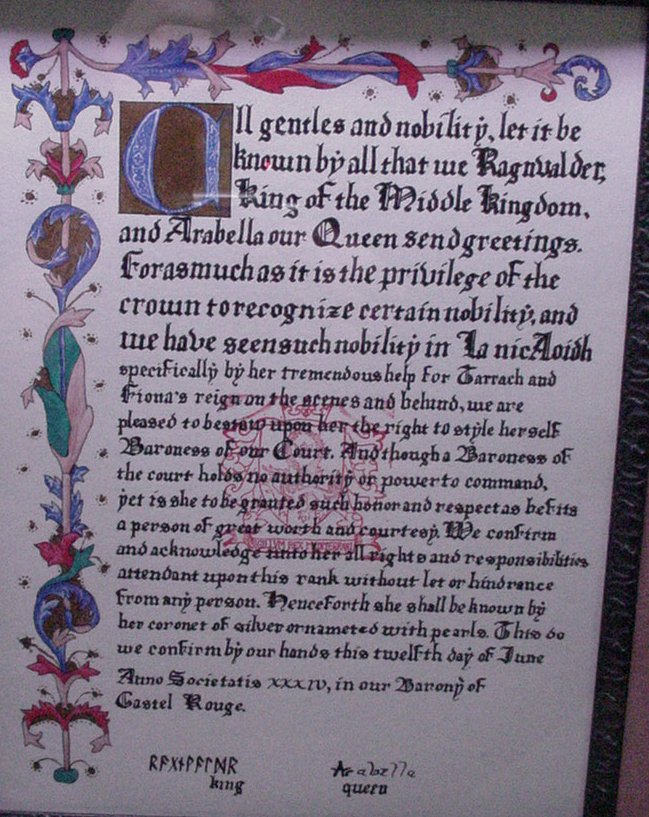 All gentles and nobility, let it be
known by all that we Ragnvalder,
King of the Middle Kingdom,
and Arabella our Queen send greetings.
Forasmuch as it is the privilege of the
crown to recognize certain nobility, and
we have seen such nobility in La nicAoidh
specifically by her tremendous help for Tarrach and
Fiona's reign on the scenes and behind, we are
pleased to bestow upon her the right to style herself
Baroness of our Court. And though a Baroness of
the court holds no authority or power to command,
yet is she to be granted such honor and respect as befits
a person of great worth and courtesy. We confirm
and acknowledge unto her all rights and responsibilities
attendant upon this rank without let or hindrance
from any person. Henceforth she shall be known by
her coronet of silver ornameted with pearls. This do
we confirm by our hands this twelfth day of June
Anno Societatis xxxiv, in our Barony of
Castel Rouge.
ᚱᚨᚷᚾᚹᚨᛚᛞᚱ Arabella
king queen